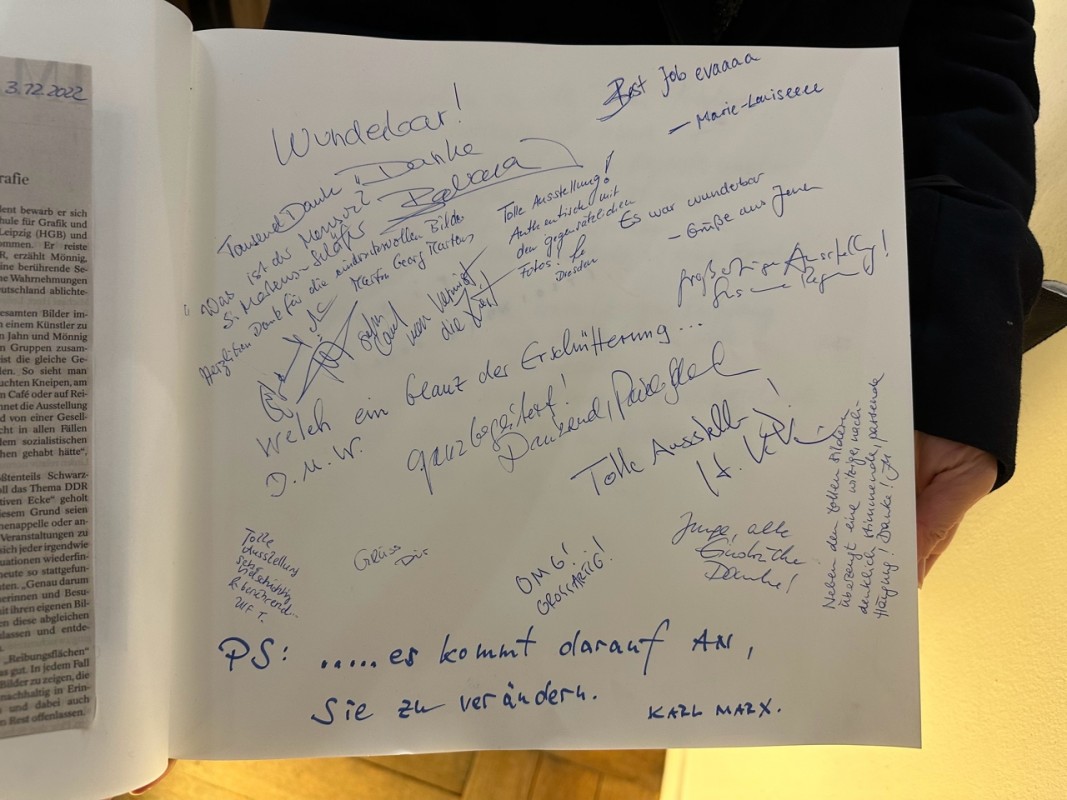 3.12.2022
rafie
dent bewarb er sich
hule für Grafik und
Leipzig (HGB) und
ommen. Er reiste
R, erzählt Mönnig,
ine berührende Se-
he Wahrnehmungen
eutschland ablichte-
gesamten Bilder im-
n einem Künstler zu
n Jahn und Mönnig
n Gruppen zusam-
eist die gleiche Ge-
len. So sieht man
uchten Kneipen, am
n Café oder auf Rei-
hnet die Ausstellung
d von einer Gesell-
cht in allen Fällen
dem sozialistischen
hen gehabt hätte",
ßtenteils Schwarz-
oll das Thema DDR
tiven Ecke" geholt
iesem Grund seien
nenappelle oder an-
Veranstaltungen zu
sich jeder irgendwie
uationen wiederfin-
heute so stattgefun-
nten. „Genau darum
nerinnen und Besu-
it ihren eigenen Bil-
n diese abgleichen
lassen und entde-
„Reibungsflächen"
as gut. In jedem Fall
Bilder zu zeigen, die
nachhaltig in Erin-
und dabei auch
n Rest offenlassen.
Best Job evaaaa
– Marie-Louiseeee
Wunderbar!
Danke
Barbara
Tausend Dank
Was ist der Mensch?
Herzlichen Dank für die eindrucksvollen Bilder
Martin Georg Martens
Tolle Ausstellung!
Authentisch mit
den gegensätzlichen
Fotos!
Dresden
Es war wunderbar
– Grüße aus Jena
großartige Ausstellung!
Welch ein Glanz der Erschütterung...
D. M. W.
ganz begeistert!
Tausend
Tolle Ausstell
Tolle
Ausstellung
Sehr
& berührend
Grüss
Dir
OMG!
GROSSARTIG!
Jungs, alle
Danke!
Neben den tollen Bildern
überzeugt eine witzige, nach-
denklich stimmende, passende
Hängung! Danke!
PS: .....es kommt darauf AN,
Sie zu verändern.
KARL MARX.